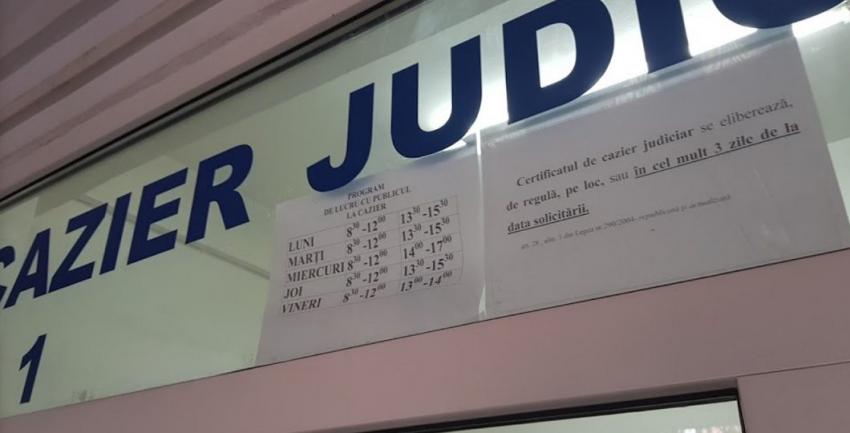 CAZIER JUDIC
1
PROGRAM
DE LUCRU CU PUBLICUL
LA CAZIER
LUNI 8³⁰-12⁰⁰ 13³⁰-15³⁰
MARȚI 8³⁰-12⁰⁰ 13³⁰-15³⁰
MIERCURI 8³⁰-12⁰⁰ 14⁰⁰-17⁰⁰
JOI 8³⁰-12⁰⁰ 13³⁰-15³⁰
VINERI 8³⁰-12⁰⁰ 13⁰⁰-14⁰⁰
Certificatul de cazier judiciar se eliberează,
de regulă, pe loc, sau în cel mult 3 zile de la
data solicitării.
art. 28, alin. 1 din Legea nr.290/2004- republicată și actualizată